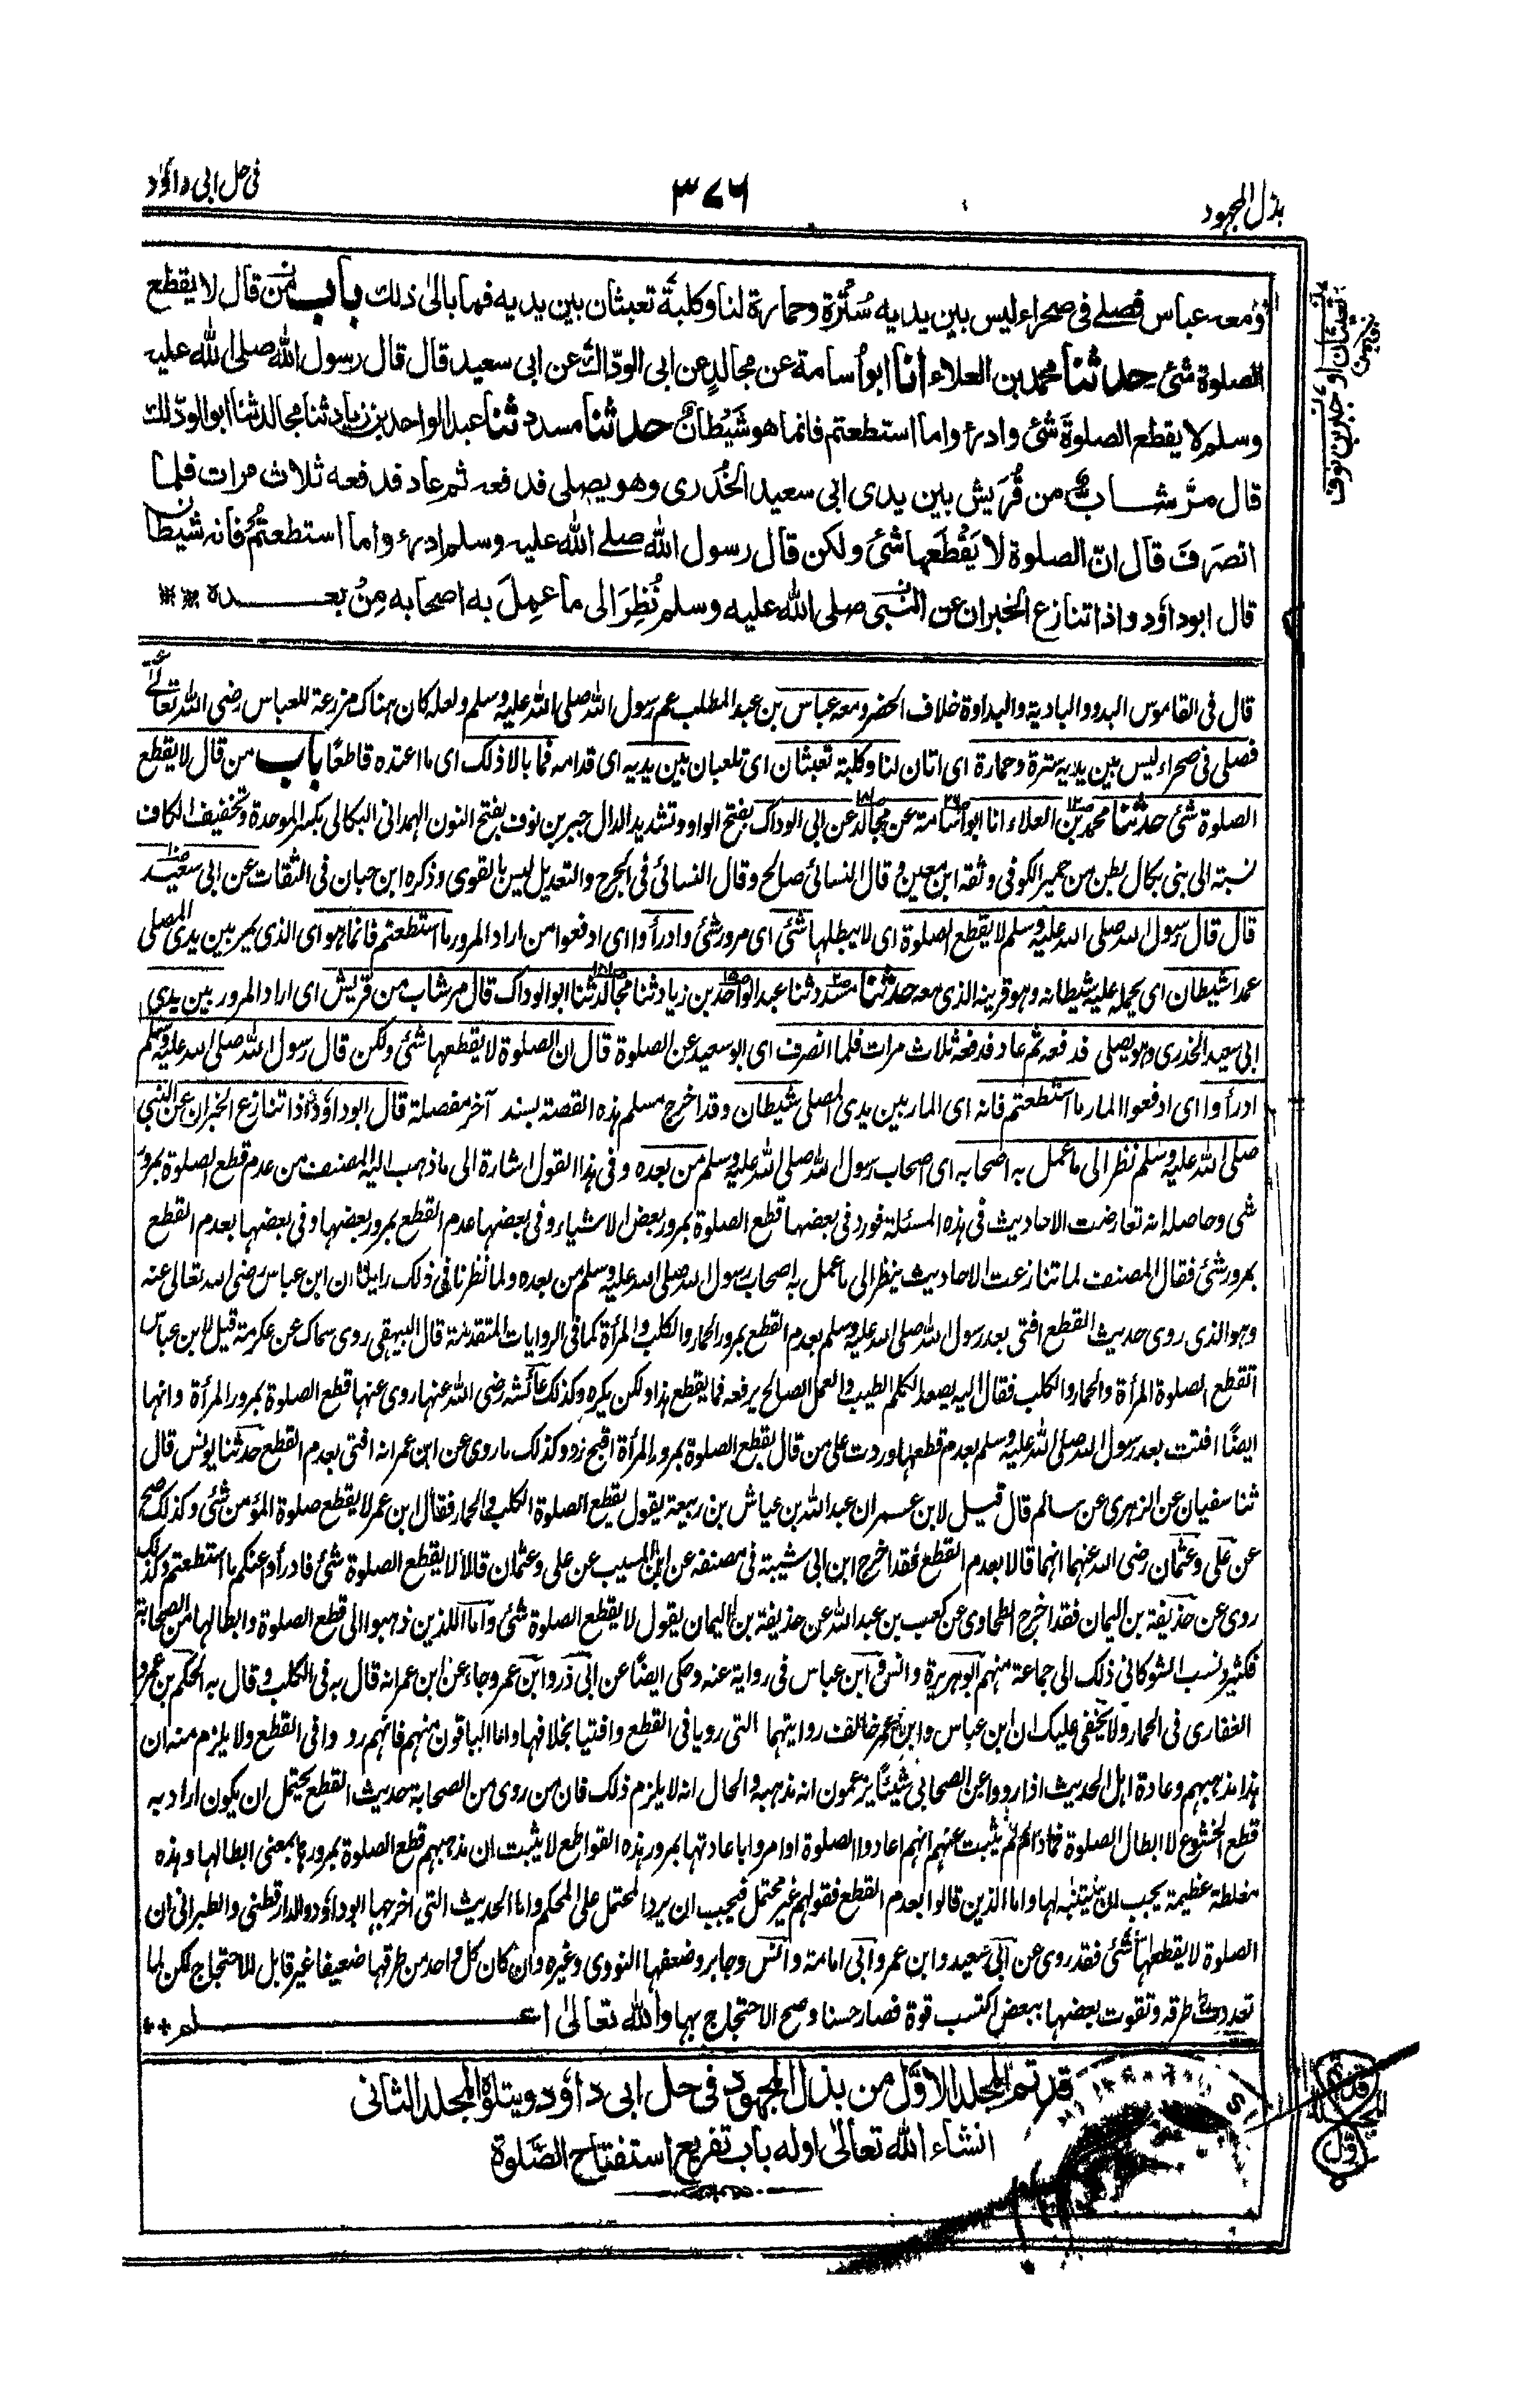 بذل المجهود
٣٧٦
فی حل ابی داؤد
ومعه عباس فصلے فی صحراء لیس بین یدیه سُتْرَة وحمارة لنا وکلبة تعبثان بین یدیه فما بالیٰ ذلك باب من قال لا یقطع
الصلوة شئ حدثنا محمد بن العلاء انا ابو اُسامة عن مجالدٍ عن ابی الودّاك عن ابی سعید قال قال رسول الله صلی الله علیه
وسلم لا یقطع الصلوةَ شئ وادرءوا ما استطعتم فانما هو شَیْطانٌ حدثنا مسدد ثنا عبد الواحد بن زیاد ثنا مجالد ثنا ابو الودّاك
قال مرَّ شاب من قُرَیش بین یدی ابی سعید الخُدری وهو یصلی فدفعه ثم عاد فدفعه ثلاث مرات فلما
انصَرَفَ قال انّ الصلوة لا یَقْطَعها شئ ولکن قال رسول الله صلے الله علیه وسلم ادرءوا ما استطعتُم فانه شیطان
قال ابوداؤد واذا تنازع الخبران عن النبی صلی الله علیه وسلم نُظِرَ الی ما عمِلَ به اصحابه مِنْ بعده
قال فی القاموس البدو والبادیة والبداوة خلاف الحضر ومعه عباس بن عبد المطلب عم رسول الله صلی الله علیه وسلم ولعله کان هناک مزرعة للعباس رضی الله تعالٰے عنه
فصلی فی صحراء لیس بین یدیه سترة وحمارة ای اتان لنا وکلبة تعبثان ای تلعبان بین یدیه ای قدامه فما بالا ذلک ای ما اعتده قاطعًا باب من قال لا یقطع
الصلوة شئ حدثنا محمد بن العلاء انا ابو اسامة عن مجالد عن ابی الوداک بفتح الواو وتشدید الدال جبر بن نوف بفتح النون الهمدانی البکالی بکسر الموحدة وتخفیف الکاف
نسبة الی بنی بکال بطن من حمیر الکوفی وثقه ابن معین وقال النسائی صالح وقال النسائی فی الجرح والتعدیل لیس بالقوی وذکره ابن حبان فی الثقات عن ابی سعید
قال قال رسول الله صلی الله علیه وسلم لا یقطع الصلوة ای لا یبطلها شئ ای مرور شئ وادرأوا ای ادفعوا من اراد المرور ما استطعتم فانما هو ای الذی یمر بین یدی المصلی
عمدا شیطان ای یحمله علیه شیطانه وهو قرینه الذی معه حدثنا مسدد ثنا عبد الواحد بن زیاد ثنا مجالد ثنا ابو الوداک قال مر شاب من قریش ای اراد المرور بین یدی
ابی سعید الخدری وهو یصلی فدفعه ثم عاد فدفعه ثلاث مرات فلما انصرف ای ابو سعید عن الصلوة قال ان الصلوة لا یقطعها شئ ولکن قال رسول الله صلی الله علیه وسلم
ادرأوا ای ادفعوا المار ما استطعتم فانه ای المار بین یدی المصلی شیطان وقد اخرج مسلم هذه القصة بسند آخر مفصلة قال ابو داؤد اذا تنازع الخبران عن النبی
صلی الله علیه وسلم نظر الی ما عمل به اصحابه ای اصحاب رسول الله صلی الله علیه وسلم من بعده وفی هذا القول اشارة الی ما ذهب الیه المصنف من عدم قطع الصلوة بمرور
شئ وحاصله انه تعارضت الاحادیث فی هذه المسئلة فورد فی بعضها قطع الصلوة بمرور بعض الاشیاء وفی بعضها عدم القطع بمرور بعضها وفی بعضها بعدم القطع
بمرور شئ فقال المصنف لما تنازعت الاحادیث ینظر الی ما عمل به اصحاب رسول الله صلی الله علیه وسلم من بعده ولما نظرنا فی ذلک راینا ان ابن عباس رضی الله تعالی عنه
وهو الذی روی حدیث القطع افتی بعد رسول الله صلی الله علیه وسلم بعدم القطع بمرور الحمار والکلب والمرأة کما فی الروایات المتقدمة قال البیهقی روی سماک عن عکرمة قیل لابن عباس
اتقطع الصلوة المرأة والحمار والکلب فقال الیه یصعد الکلم الطیب والعمل الصالح یرفعه فما یقطع هذا ولکن یکره وکذلک عائشه رضی الله عنها روی عنها قطع الصلوة بمرور المرأة وانها
ایضًا افتت بعد رسول الله صلی الله علیه وسلم بعدم قطعها وردت علی من قال بقطع الصلوة بمرور المرأة اقبح رد وکذلک ما روی عن ابن عمر انه افتی بعدم القطع حدثنا یونس قال
ثنا سفیان عن الزهری عن سالم قال قیل لابن عمر ان عبد الله بن عیاش بن ربیعة یقول یقطع الصلوة الکلب والحمار فقال ابن عمر لا یقطع صلوة المؤمن شئ وکذلک صح
عن علی وعثمان رضی الله عنهما انهما قالا بعدم القطع فقد اخرج ابن ابی شیبة فی مصنفه عن ابن المسیب عن علی وعثمان قالا لا یقطع الصلوة شئ فادرأوا عنکم ما استطعتم وکذلک
روی عن حذیفة بن الیمان فقد اخرج الطحاوی عن کعب بن عبد الله عن حذیفة بن الیمان یقول لا یقطع الصلوة شئ واما اللذین ذهبوا الی قطع الصلوة وابطالها من الصحابة
فکثیر ونسب الشوکانی ذلک الی جماعة منهم ابو هریرة وانس وابن عباس فی روایة عنه وحکی ایضًا عن ابی ذر وابن عمر وجاء عن ابن عمر انه قال به فی الکلب وقال به الحکم بن عمرو
الغفاری فی الحمار ولا یخفی علیک ان ابن عباس وابن عمر خالف روایتهما التی رویا فی القطع وافتیا بخلافها واما الباقون منهم فانهم رووا فی القطع ولا یلزم منه ان
هذا مذهبهم وعادة اهل الحدیث اذا رووا عن الصحابی شیئًا یزعمون انه مذهبه والحال انه لا یلزم ذلک فان من روی من الصحابة حدیث القطع یحتمل ان یکون اراد به
قطع الخشوع لا ابطال الصلوة فما دام لم یثبت عنهم انهم اعادوا الصلوة او امروا باعادتها بمرور هذه القواطع لا یثبت ان مذهبهم قطع الصلوة بمرورها بمعنی ابطالها وهذه
مغلطة عظیمة یجب ان یتنبه لها واما الذین قالوا بعدم القطع فقولهم غیر محتمل فیجب ان یرد المحتمل علی المحکم واما الحدیث التی اخرجها ابو داؤد والدارقطنی والطبرانی ان
الصلوة لا یقطعها شئ فقد روی عن ابی سعید وابن عمر وابی امامة وانس وجابر وضعفها النووی وغیره وان کان کل واحد من طرقها ضعیفا غیر قابل للاحتجاج لکن لما
تعددت طرقه وتقوت بعضها ببعض اکتسب قوة فصار حسنا وصح الاحتجاج بها والله تعالیٰ اعلم
قد تم المجلد الاوّل من بذل المجهود فی حل ابی داؤد ویتلوه المجلد الثانی
انشاء الله تعالیٰ اوله باب تفریع استفتاح الصَّلوة